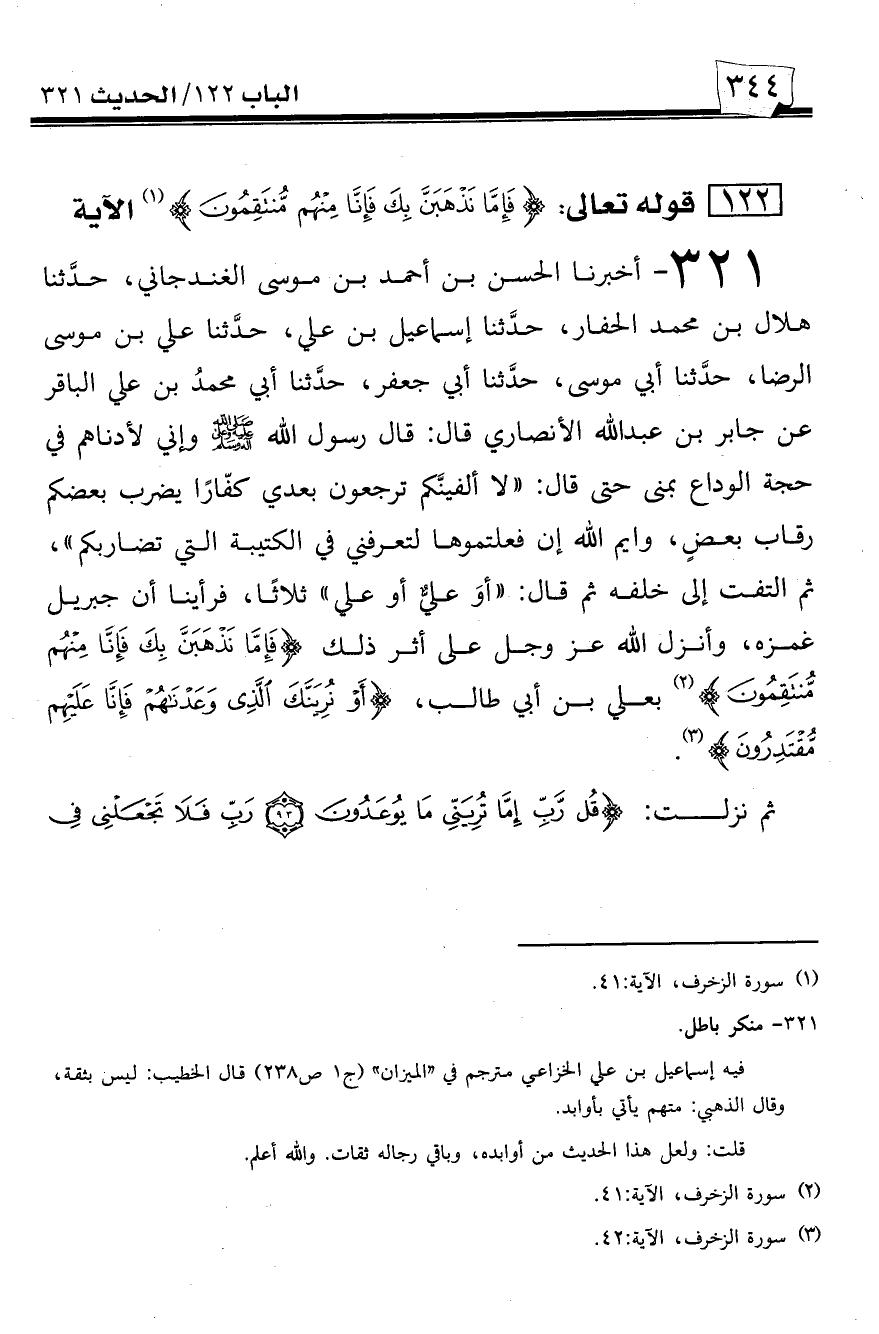 ٣٤٤
الباب ١٢٢/الحديث ٣٢١
١٢٢ قوله تعالى: ﴿فَإِمَّا نَذْهَبَنَّ بِكَ فَإِنَّا مِنْهُم مُّنتَقِمُونَ﴾(١) الآية
٣٢١- أخبرنا الحسن بن أحمد بن موسى الغندجاني، حدَّثنا
هلال بن محمد الحفار، حدَّثنا إسماعيل بن علي، حدَّثنا علي بن موسى
الرضا، حدَّثنا أبي موسى، حدَّثنا أبي جعفر، حدَّثنا أبي محمدُ بن علي الباقر
عن جابر بن عبدالله الأنصاري قال: قال رسول الله ﷺ وإني لأدناهم في
حجة الوداع بمنى حتى قال: «لا ألفينَّكم ترجعون بعدي كفّارًا يضرب بعضكم
رقاب بعضٍ، وايم الله إن فعلتموها لتعرفني في الكتيبة التي تضاربكم»،
ثم التفت إلى خلفه ثم قال: «أوَ عليٌّ أو علي» ثلاثًا، فرأينا أن جبريل
غمزه، وأنزل الله عز وجل على أثر ذلك ﴿فَإِمَّا نَذْهَبَنَّ بِكَ فَإِنَّا مِنْهُم
مُّنتَقِمُونَ﴾(٢) بعلي بن أبي طالب، ﴿أَوْ نُرِيَنَّكَ ٱلَّذِى وَعَدْنَٰهُمْ فَإِنَّا عَلَيْهِم
مُّقْتَدِرُونَ﴾(٣).
ثم نزلت: ﴿قُل رَّبِّ إِمَّا تُرِيَنِّى مَا يُوعَدُونَ ۝٩٣ رَبِّ فَلَا تَجْعَلْنِى فِى
(١) سورة الزخرف، الآية:٤١.
٣٢١- منكر باطل.
فيه إسماعيل بن علي الخزاعي مترجم في "الميزان" (ج١ ص٢٣٨) قال الخطيب: ليس بثقة،
وقال الذهبي: متهم يأتي بأوابد.
قلت: ولعل هذا الحديث من أوابده، وباقي رجاله ثقات. والله أعلم.
(٢) سورة الزخرف، الآية:٤١.
(٣) سورة الزخرف، الآية:٤٢.